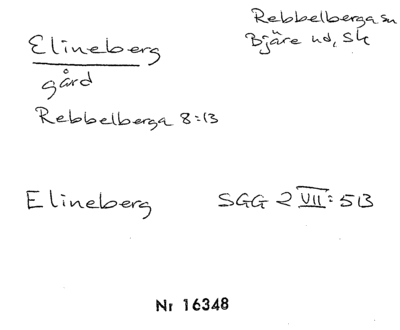 Rebbelberga sn
Bjäre hd, Sk
Elineberg
gård
Rebbelberga 8:13
Elineberg SGG 2 VII:513
Nr 16348